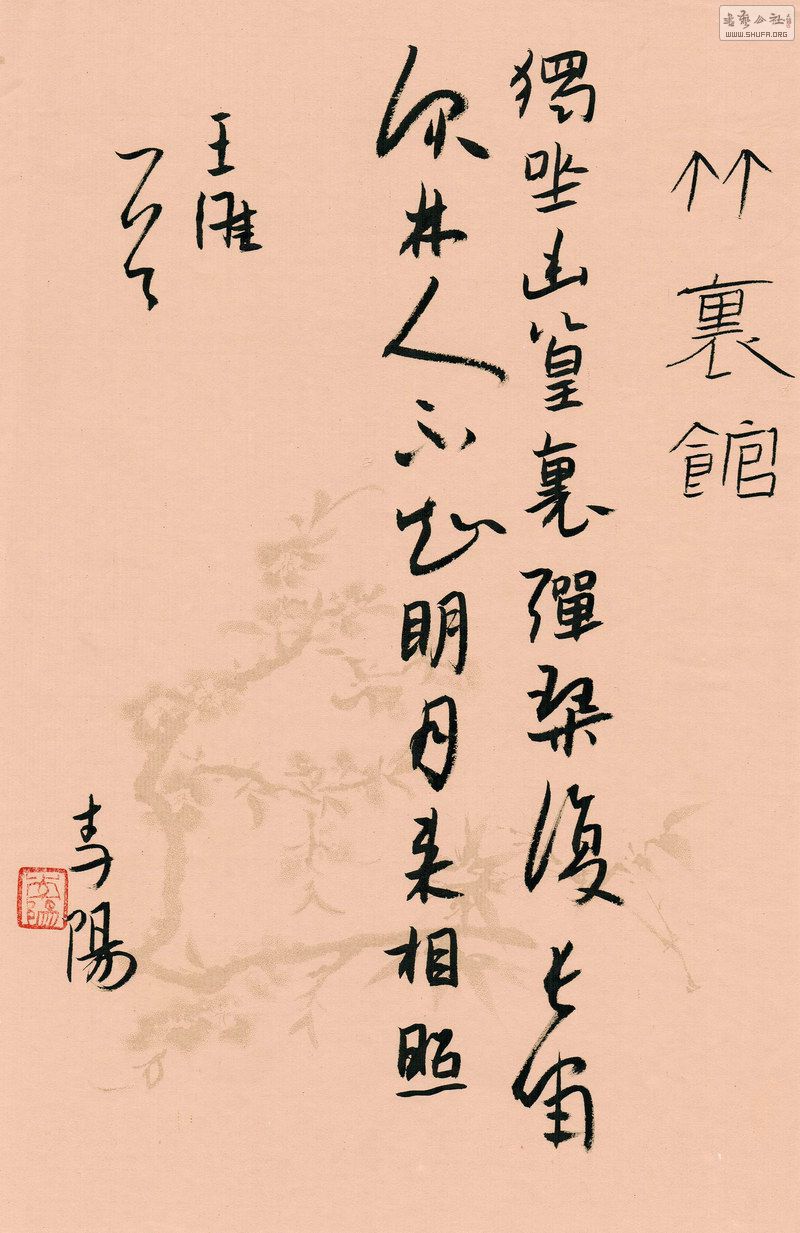 書藝公社
WWW.SHUFA.ORG
竹裏館
獨坐幽篁裏彈琴復長嘯
深林人不知明月来相照
王維
陽